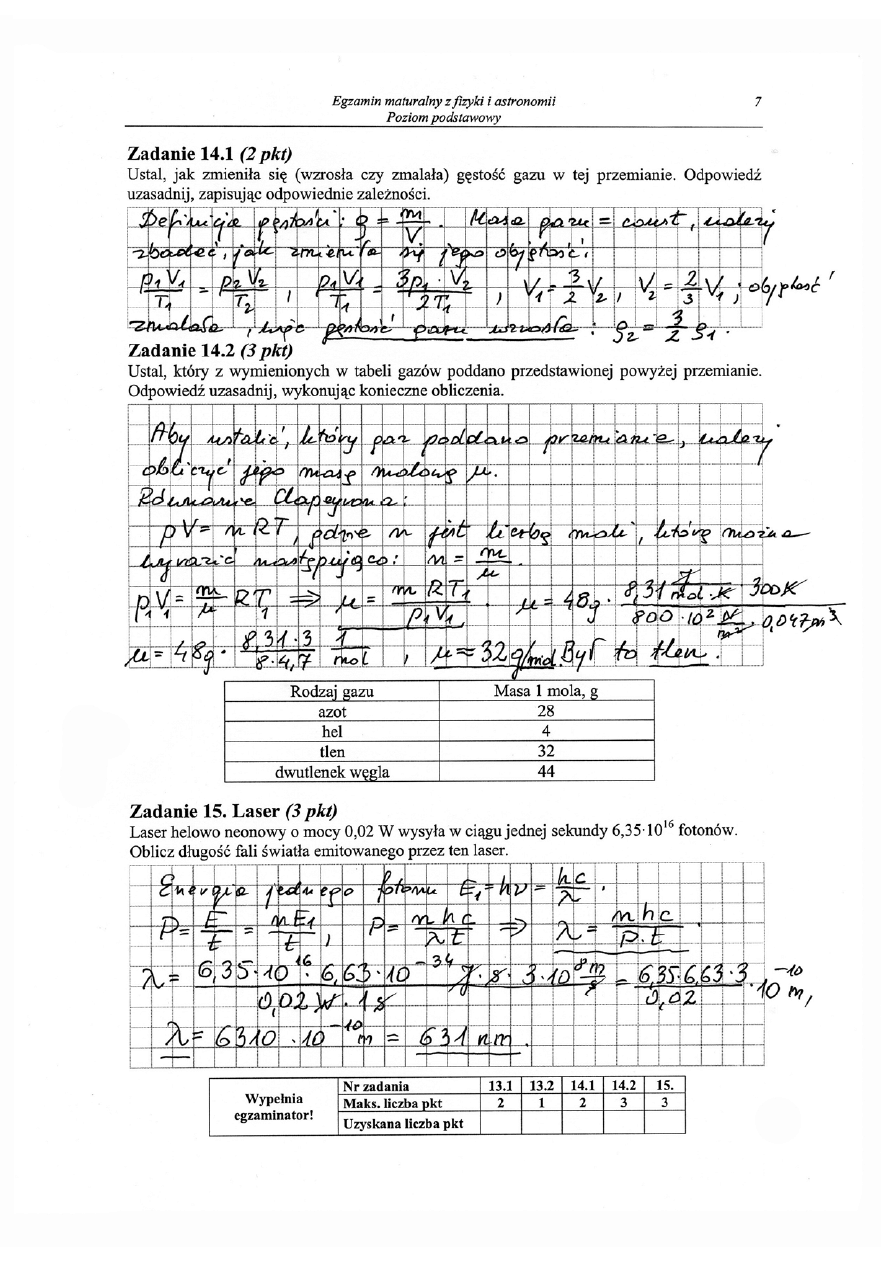 Egzamin maturalny z fizyki i astronomii 7
Poziom podstawowy
Zadanie 14.1 (2 pkt)
Ustal, jak zmieniła się (wzrosła czy zmalała) gęstość gazu w tej przemianie. Odpowiedź
uzasadnij, zapisując odpowiednie zależności.
Definicja gęstości: ρ = m/V . Masa gazu = const, należy
zbadać, jak zmieniła się jego objętość:
p₁V₁/T₁ = p₂V₂/T₂ , p₁V₁/T₁ = 3p₁·V₂/2T₁ , V₁ = 3/2 V₂ , V₂ = 2/3 V₁ ; objętość
zmalała , więc gęstość gazu wzrosła : ρ₂ = 3/2 ρ₁ .
Zadanie 14.2 (3 pkt)
Ustal, który z wymienionych w tabeli gazów poddano przedstawionej powyżej przemianie.
Odpowiedź uzasadnij, wykonując konieczne obliczenia.
Aby ustalić, który gaz poddano przemianie, należy
obliczyć jego masę molową μ.
Równanie Clapeyrona:
pV = nRT, gdzie n jest liczbą moli, którą można
wyrazić następująco: n = m/μ .
p₁V₁ = m/μ RT₁ ⇒ μ = m RT₁/p₁V₁ . μ = 48g · 8,31 J/mol·K 300K / 800·10² N/m² · 0,047m³
μ = 48g · 8,31·3/8·4,7 1/mol , μ ≈ 32 g/mol. Był to tlen .
Rodzaj gazu Masa 1 mola, g
azot 28
hel 4
tlen 32
dwutlenek węgla 44
Zadanie 15. Laser (3 pkt)
Laser helowo neonowy o mocy 0,02 W wysyła w ciągu jednej sekundy 6,35·10¹⁶ fotonów.
Oblicz długość fali światła emitowanego przez ten laser.
Energia jednego fotonu E₁ = hν = hc/λ .
P = E/t = nE₁/t , P = nhc/λt ⇒ λ = nhc/P·t .
λ = 6,35·10¹⁶ · 6,63·10⁻³⁴ J·s · 3·10⁸ m/s / 0,02 W · 1s = 6,35·6,63·3/0,02 · 10⁻¹⁰ m,
λ = 6310 · 10⁻¹⁰ m = 631 nm .
Wypełnia egzaminator! Nr zadania 13.1 13.2 14.1 14.2 15.
Maks. liczba pkt 2 1 2 3 3
Uzyskana liczba pkt